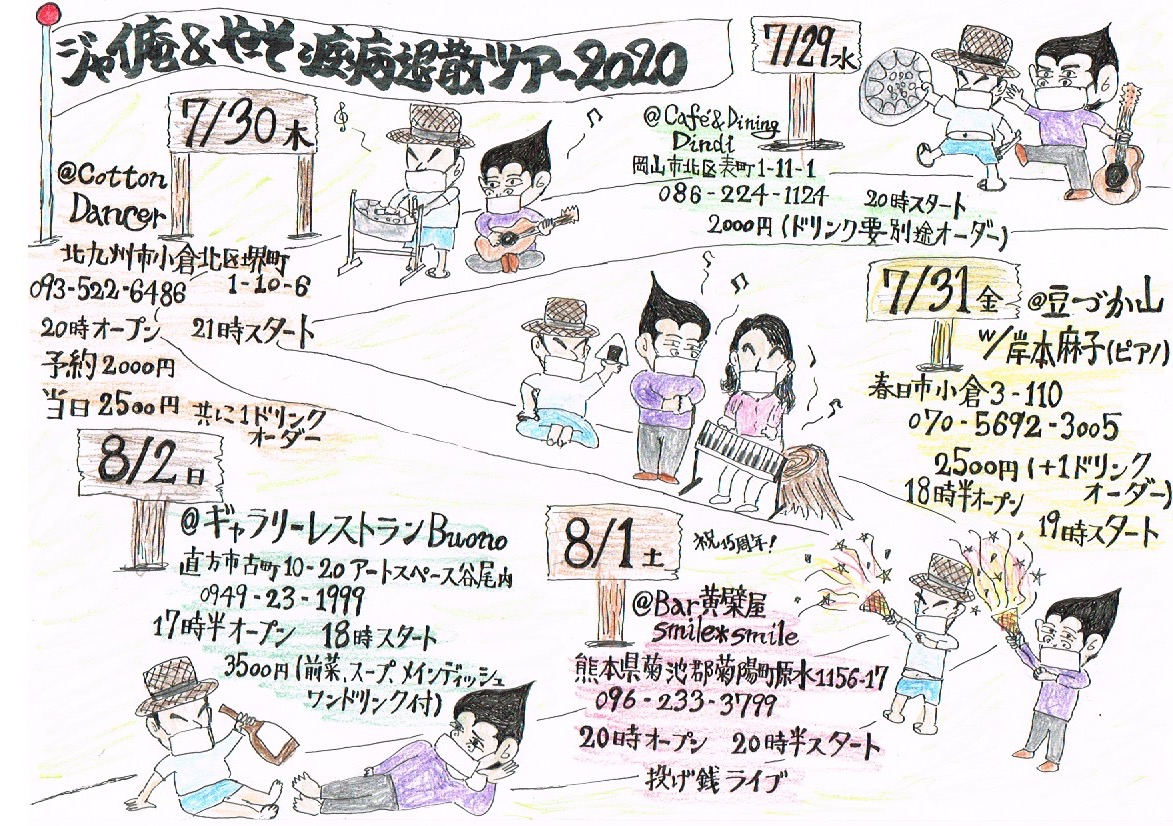 ジャイ庵&やそ疫病退散ツアー2020
7/29水
@Café&Dining
Dindi
岡山市北区表町1-11-1
086-224-1124
20時スタート
2000円(ドリンク要別途オーダー)
7/30木
@Cotton
Dancer
北九州市小倉北区堺町
1-10-6
093-522-6486
20時オープン 21時スタート
予約2000円
当日2500円 共に1ドリンク
オーダー
7/31金
@豆づか山
w/岸本麻子(ピアノ)
春日市小倉3-110
070-5692-3005
2500円(+1ドリンク
オーダー)
18時半オープン
19時スタート
8/1土
祝15周年!
@Bar黄檗屋
smile*smile
熊本県菊池郡菊陽町原水1156-17
096-233-3799
20時オープン 20時半スタート
投げ銭ライブ
8/2日
@ギャラリーレストランBuono
直方市古町10-20アートスペース谷尾内
0949-23-1999
17時半オープン 18時スタート
3500円(前菜、スープ、メインディッシュ
ワンドリンク付)